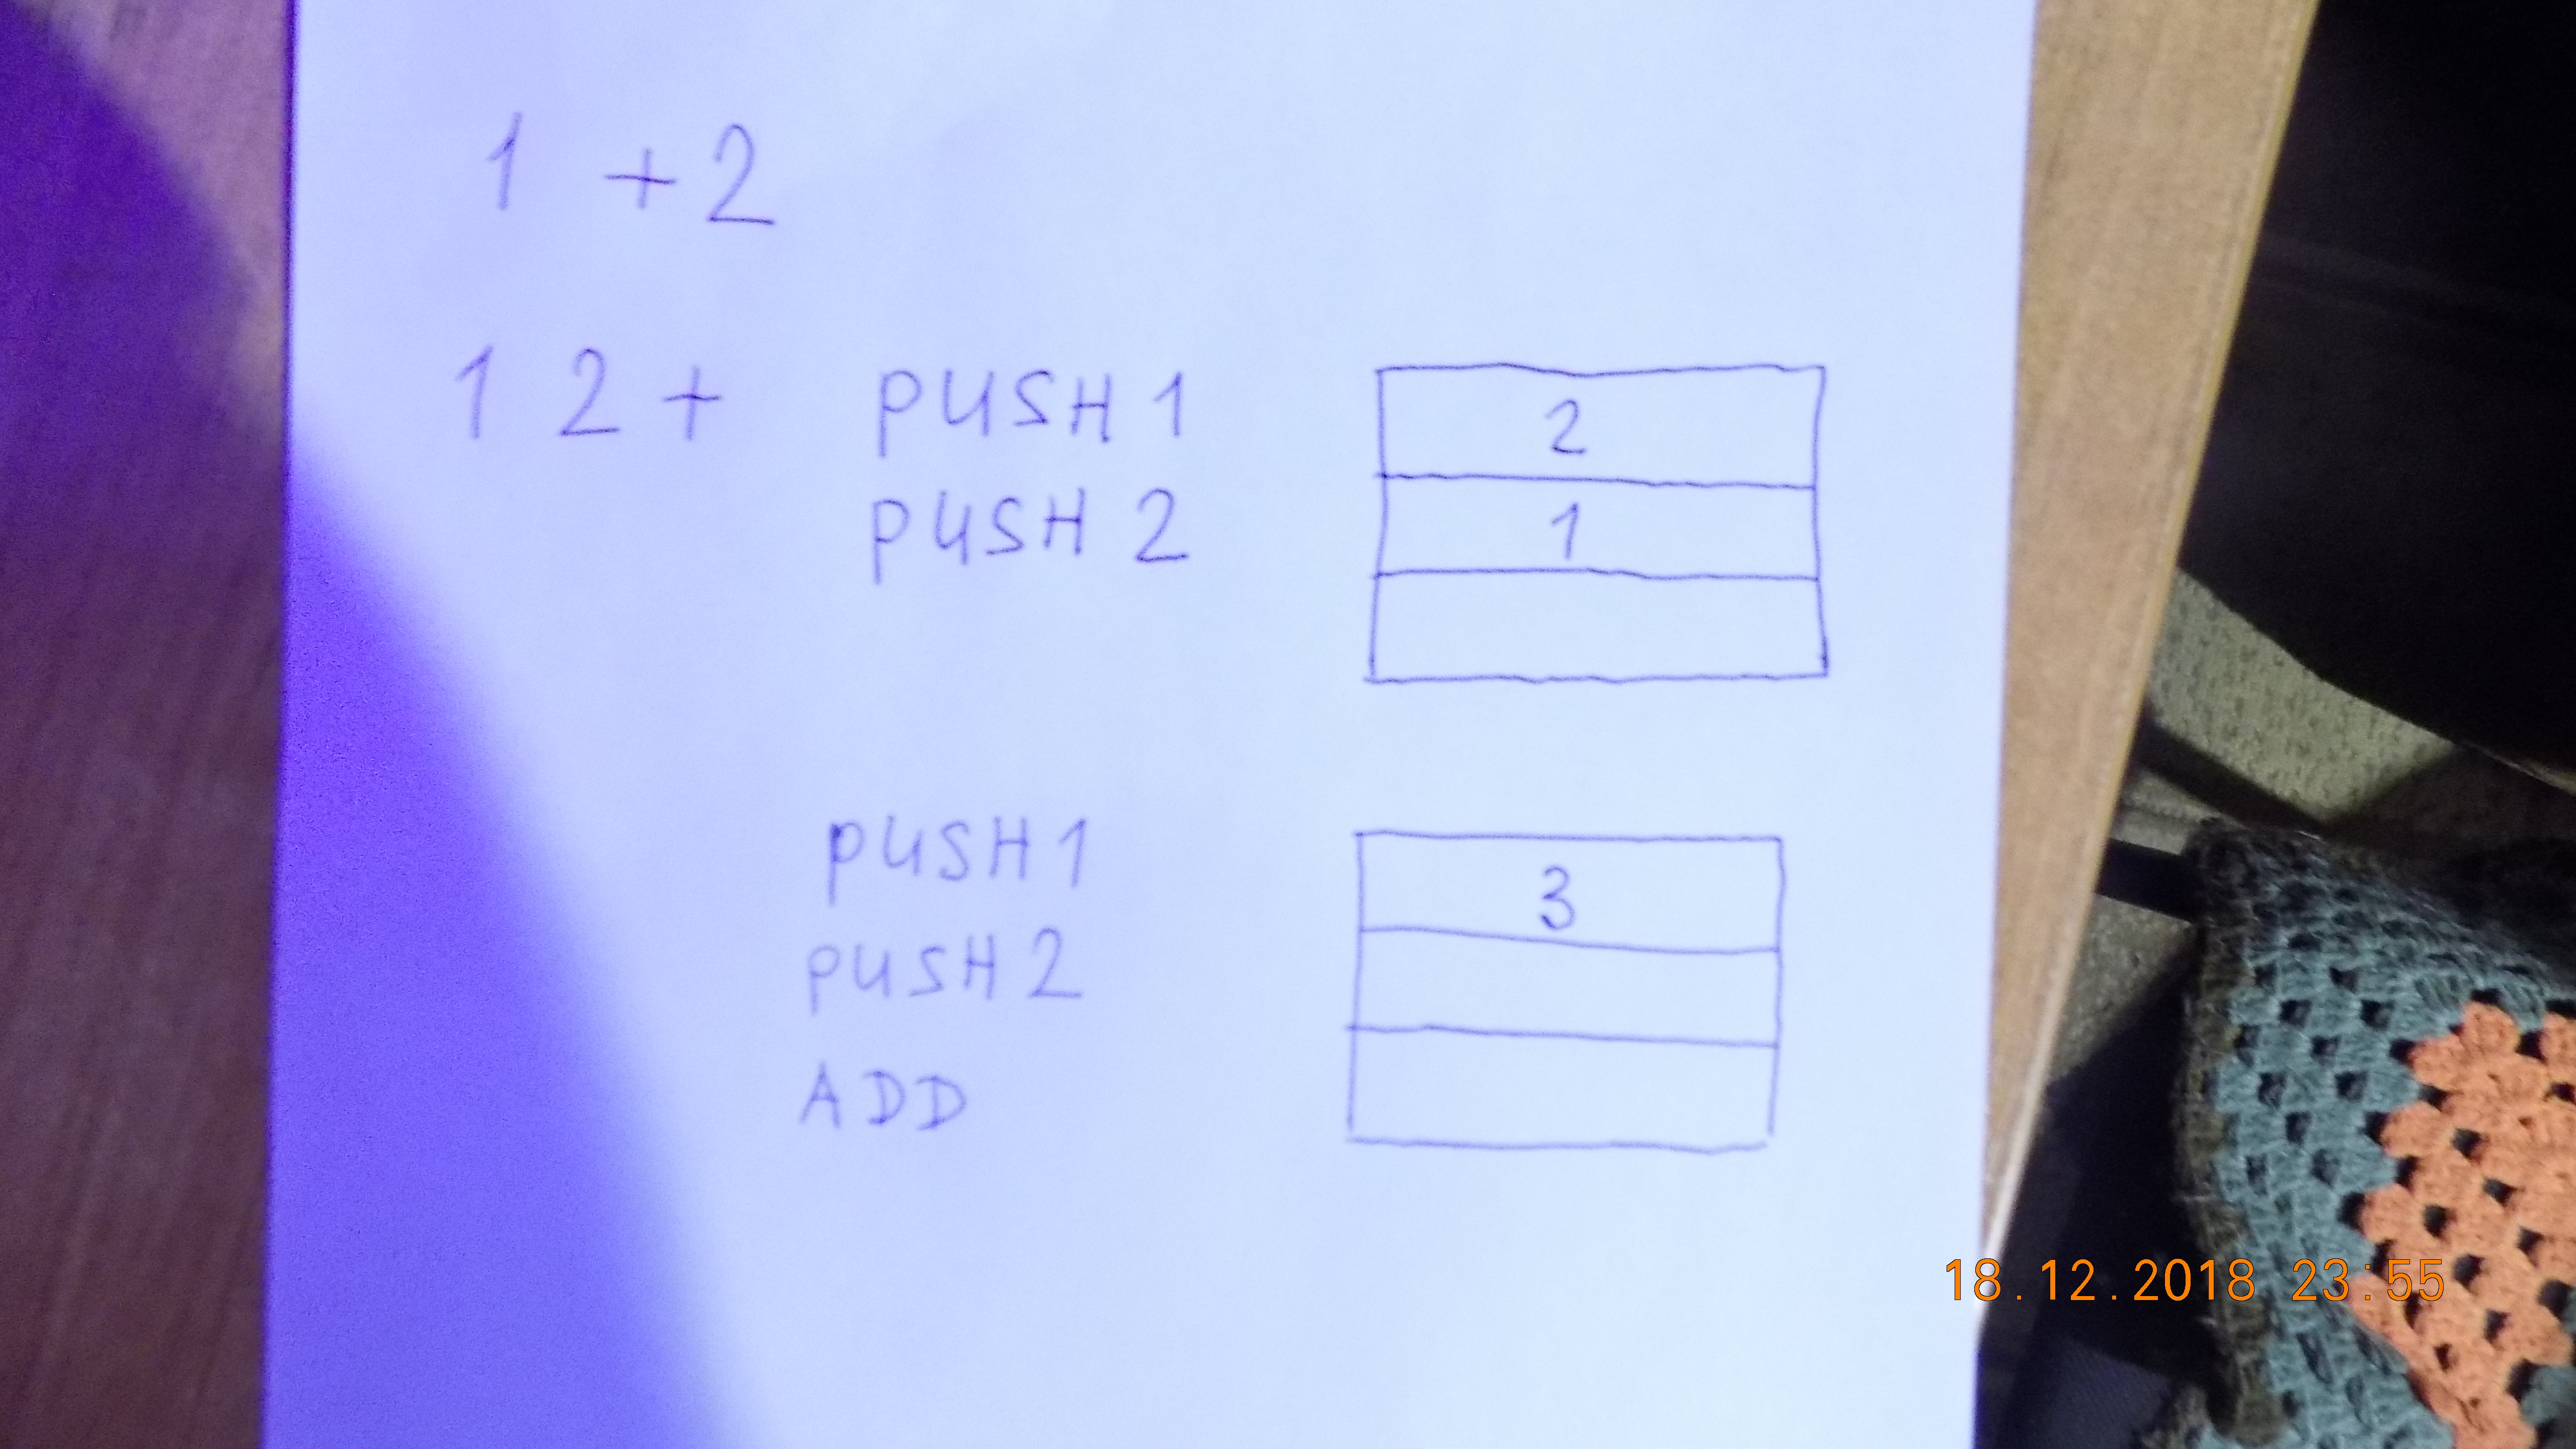 1 + 2
1 2 + PUSH 1
PUSH 2
2
1
PUSH 1
PUSH 2
ADD
3
18.12.2018 23:55